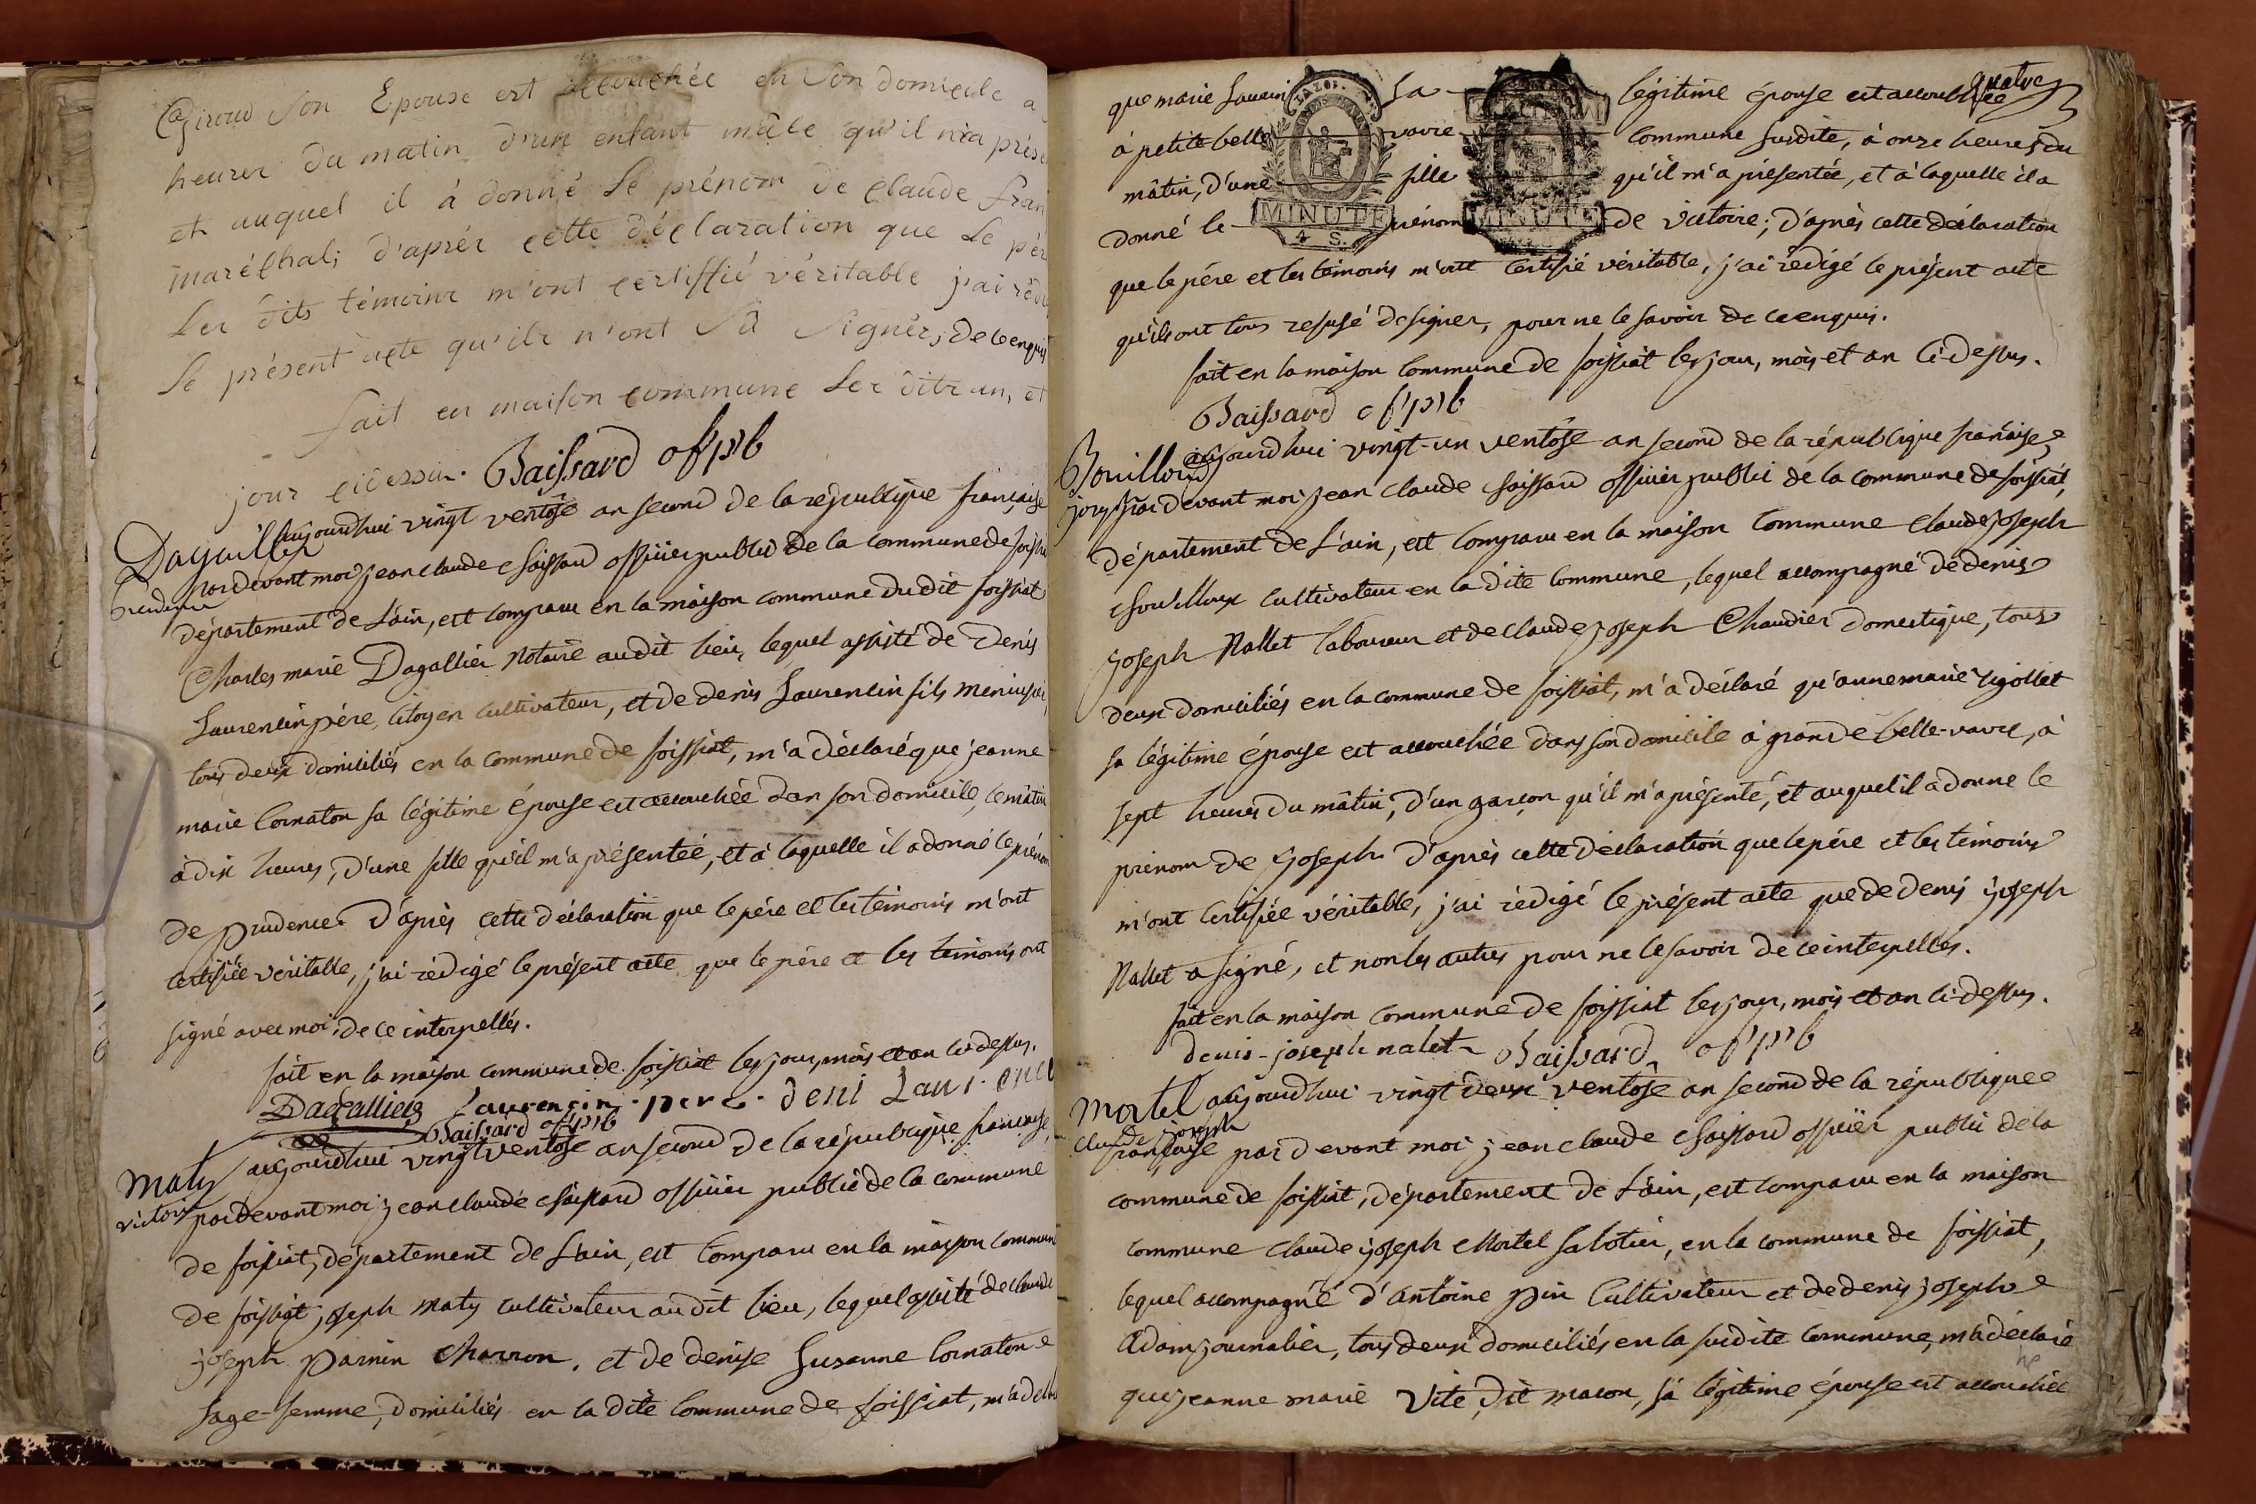 Giroud Son Epouse est accouchée en Son domicile a
heures du matin d'un enfant mâle qu'il m'a prése
et auquel il à donné Le prénom de Claude fran
maréchal; d'aprés cette déclaration que Le pér
Les dits témoins m'ont certiffié véritable j'ai rédi
Le présent acte qu'ils n'ont Sû Signér, de ce enquis
fait en maison commune Les dits an, et
jour cidessus. Baissard off pb
Dagallier
prudence
aujourd'hui vingt ventôse an second de la république française
pardevant moi jean claude Baissard officier public de la commune de foissia
département de L'ain, est comparu en la maison commune dudit foissiat
Charles marie Dagallier Notaire audit lieu, lequel assisté de Denis
Laurencin père, citoyen cultivateur, et de denis Laurencin fils menuisier,
tous deux domiciliés en la commune de foissiat, m'a déclaré que jeanne
marie Cornaton sa légitime épouse est accouchée dan son domicile, ce mâtin
à dix heures, d'une fille qu'il m'a présentée, et à laquelle il a donné le prénom
de prudence. D'après cette déclaration que le père et les témoins m'ont
certifiée véritable, j'ai rédigé le présent acte que le père et les témoins ont
signé avec moi, de ce interpellés.
fait en la maison commune de foissiat les jour, mois et an ci dessus.
Dagallier Laurencin père deni Laurenci
Baissard off pb
Maty
victoire
aujourd'hui vingt ventôse an second de la république française,
pardevant moi jean claude Baissard officier public de la commune
de foissiat, département de L'ain, est comparu en la maison commun
de foissiat joseph Maty cultivateur audit lieu, lequel assisté de claude
joseph parnin charron, et de denise Susanne Cornaton
sage-femme, domiciliés en la dite commune de foissiat, m'a décla
quatre
que marie Sa légitime épouse est accouchée
à petite belle vavre commune susdite, à onze heures du
mâtin, d'une fille qu'il m'a présentée, et à laquelle il a
donné le prénom de victoire; d'après cette déclaration
MINUTE MINUTE
4 S.
que le père et les témoins m'ont certifié véritable, j'ai rédigé le présent acte
qu'ils ont tous refusé de signer, pour ne le savoir de ce enquis.
fait en la maison commune de foissiat les jour, mois et an ci-dessus.
Baissard off pb
Bouilloux
joseph
aujourd'hui vingt-un ventôse an second de la république française
par devant moi jean claude Baissard officier public de la commune de foissiat,
département de L'ain, est comparu en la maison commune claude joseph
Bouilloux cultivateur en la dite commune, lequel accompagné de denis
joseph Nallet laboureur et de claude joseph Chaudier domestique, tous
deux domiciliés en la commune de foissiat, m'a déclaré qu'anne marie rigollet
sa légitime épouse est accouchée dans son domicile à grande belle-vavre, à
sept heures du mâtin, d'un garcon qu'il m'a présenté, et auquel il a donné le
prénom de joseph. D'après cette déclaration que le père et les témoins
m'ont certifiée véritable, j'ai rédigé le présent acte que de denis joseph
Nallet a signé, et non les autres pour ne le savoir de ce interpellés.
fait en la maison commune de foissiat les jour, mois et an ci-dessus.
denis-joseph nalet Baissard off pb
Mortel
claude joseph
aujourd'hui vingt deux ventôse an second de la république
française par devant moi jean claude Baissard officier public de la
commune de foissiat, département de L'ain, est comparu en la maison
commune claude joseph Mortel sabotier, en la commune de foissiat,
lequel accompagné d'antoine pin cultivateur et de denis joseph
Adam journalier, tous deux domiciliés en la susdite commune, m'a déclaré
que jeanne marie vite, dit macon, sa légitime épouse est accouchée